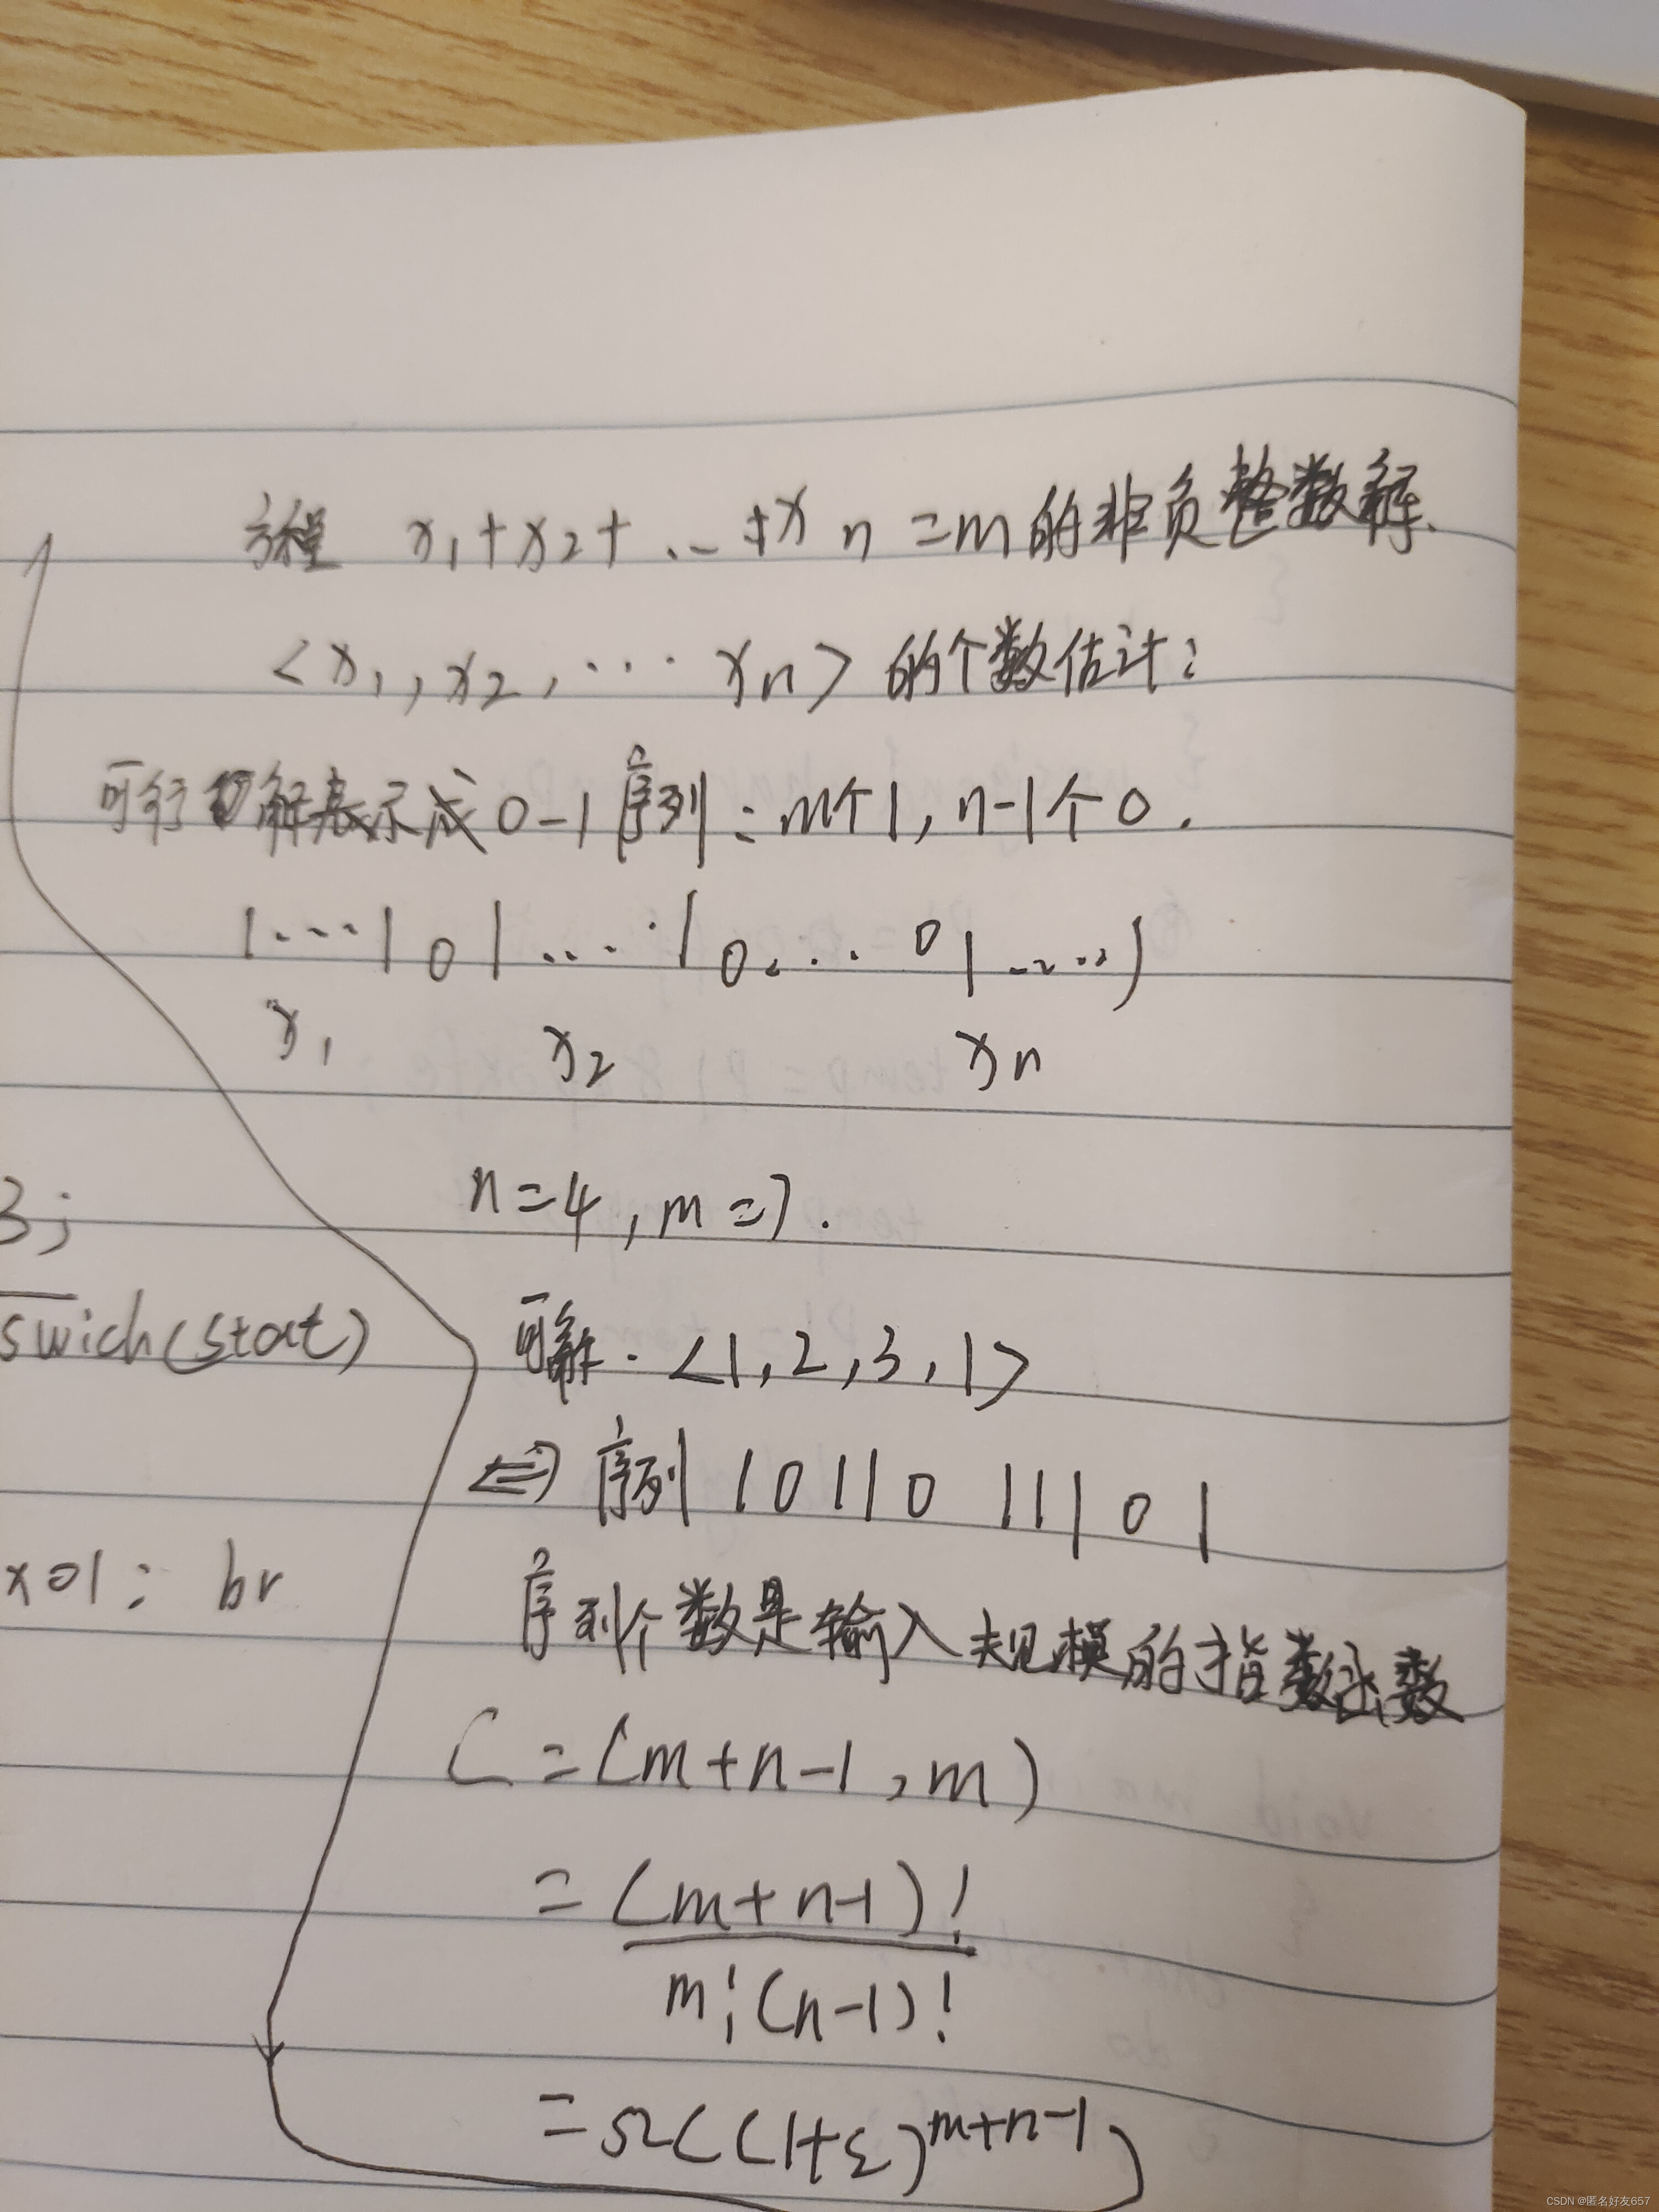 方程 x₁+x₂+...+xn=m的非负整数解.
<x₁,x₂,...xn>的个数估计:
可行解表示成0-1序列:m个1,n-1个0.
1...101....10...01....1
x₁ x₂ xn
n=4,m=7.
3;
swich(stat)
可解.<1,2,3,1>
⇔序列1011011101
x01: br
序列个数是输入规模的指数函数
C=(m+n-1,m)
=(m+n-1)!
m!(n-1)!
=Ω((1+ε)^(m+n-1))
CSDN @匿名好友657